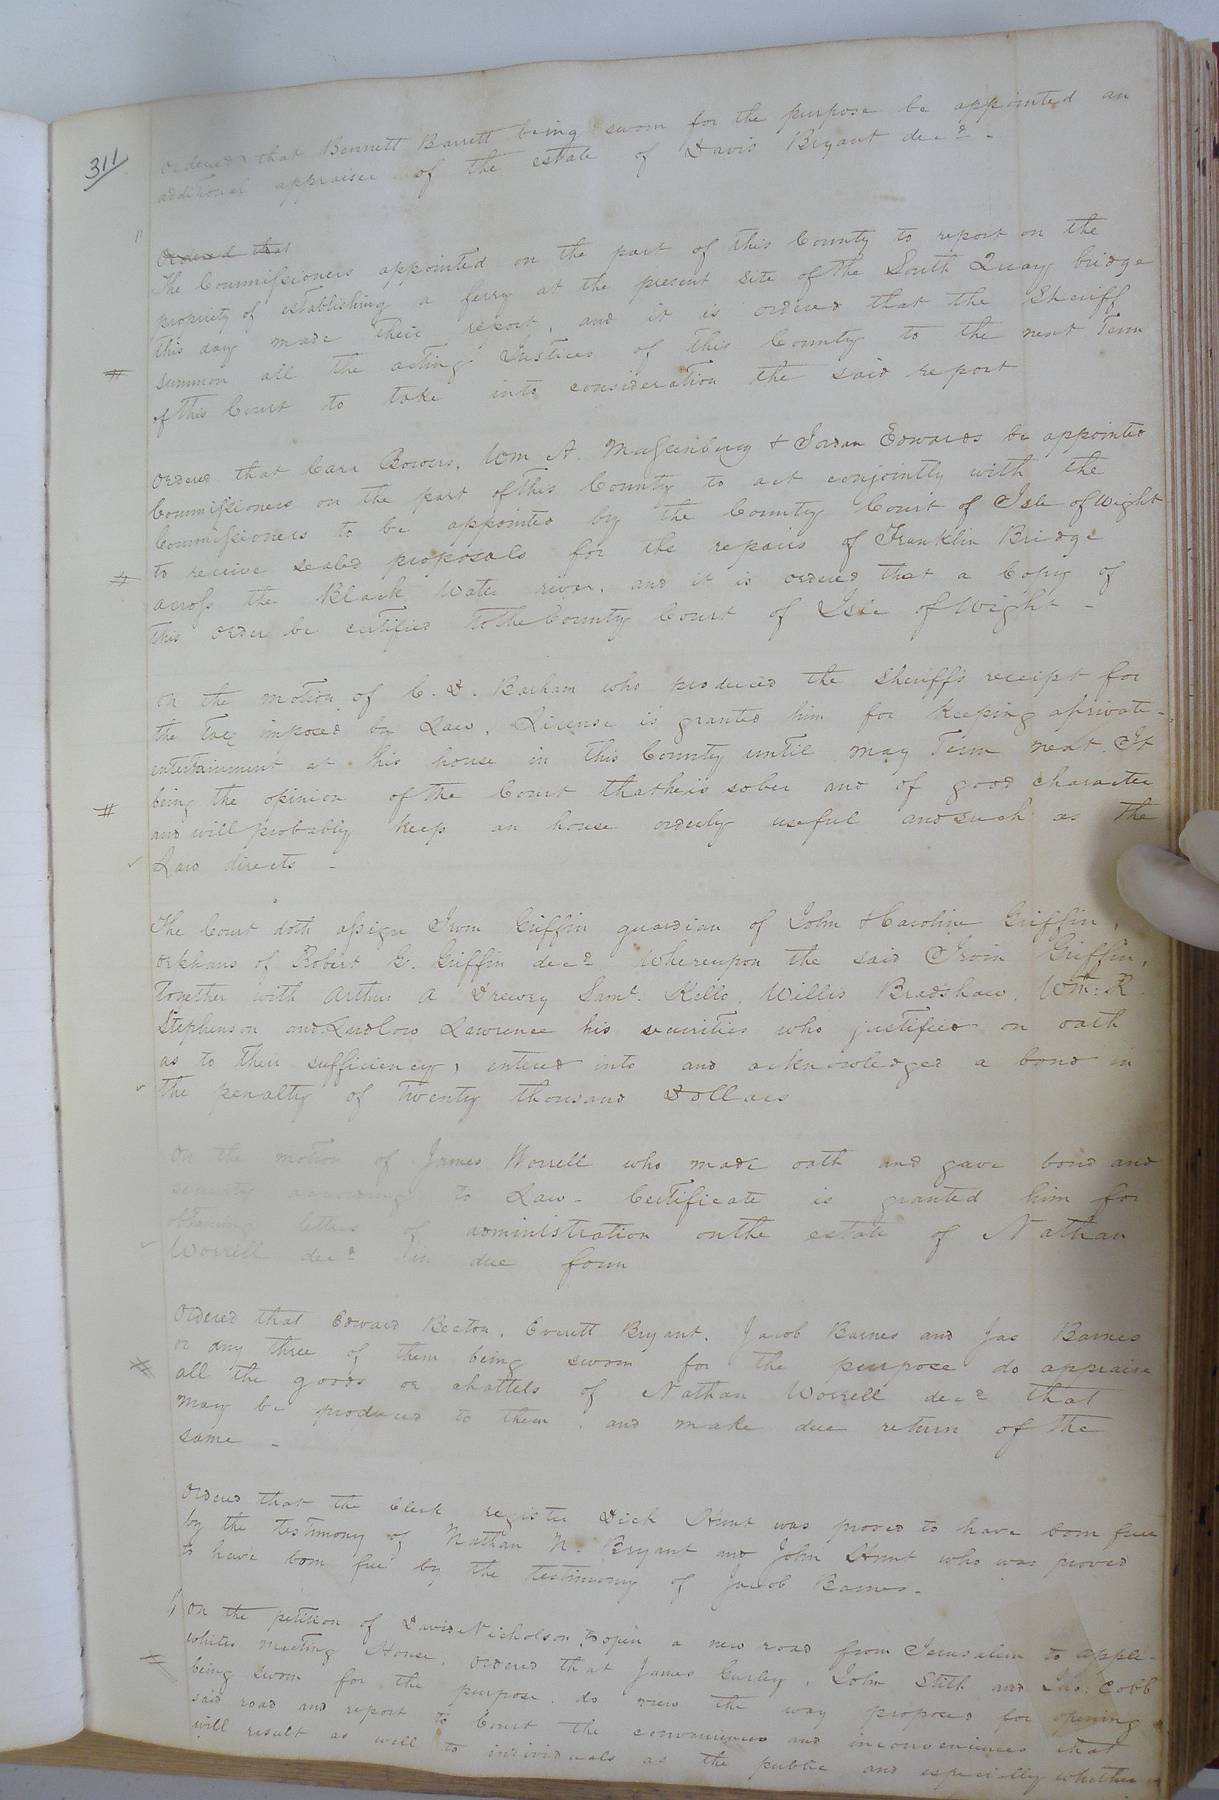 311
Ordered that Bennett Barrett being sworn for the purpose be appointed an
additional appraiser of the estate of Davis Bryant decd -
Ordered that
The Commissioners appointed on the part of this County to report on the
propriety of establishing a ferry at the present site of the South Quay bridge
this day made their report, and it is ordered that the Sheriff
summon all the acting Justices of this County to the next Term
of this Court to take into consideration the said report
Ordered that Carr Bowers, Wm A. & Jordan Edwards be appointed
Commissioners on the part of this County to act conjointly with the
Commissioners to be appointed by the County Court of Isle of Wight
to receive sealed proposals for the repairs of Franklin Bridge
across the Black Water river, and it is ordered that a Copy of
this order be certified to the County Court of Isle of Wight -
On the motion of C. D. Barham who produced the Sheriff's receipt for
the Tax imposed by Law, License is granted him for keeping a private
entertainment at his house in this County until May Term next. It
being the opinion of the Court that he is sober and of good character
and will probably keep an house orderly useful and such as the
Law directs -
The Court doth assign Irvin Griffin guardian of John & Caroline Griffin,
orphans of Robert G. Griffin decd Whereupon the said Irvin Griffin,
together with Arthur A Drewry Saml. Kello, Willis Bradshaw, Wm: R.
Stephenson and Ludlow Lawrence his securities who justified on oath
as to their sufficiency, entered into and acknowledged a bond in
the penalty of Twenty thousand Dollars
On the motion of James Worrell who made oath and gave bond and
security according to Law - Certificate is granted him for
obtaining letters of administration on the estate of Nathan
Worrell decd in due form
Ordered that Edward Beaton, Everett Bryant, Jacob Barnes and Jas Barnes
or any three of them being sworn for the purpose do appraise
all the goods or chattels of Nathan Worrell decd that
may be produced to them, and make due return of the
same -
Ordered that the Clerk register Dick Hunt was proved to have born free
by the testimony of Nathan N. Bryant and John Hunt who was proved
to have born free by the testimony of Jacob Barnes -
On the petition of David Nicholson to open a new road from Jerusalem to Apple-
whites meeting House, ordered that James Gurley, John Stith and Cobb
being sworn for the purpose do view the way proposed for opening
said road and report to Court the conveniences and inconveniences that
will result as well to individuals as the public and especially whether